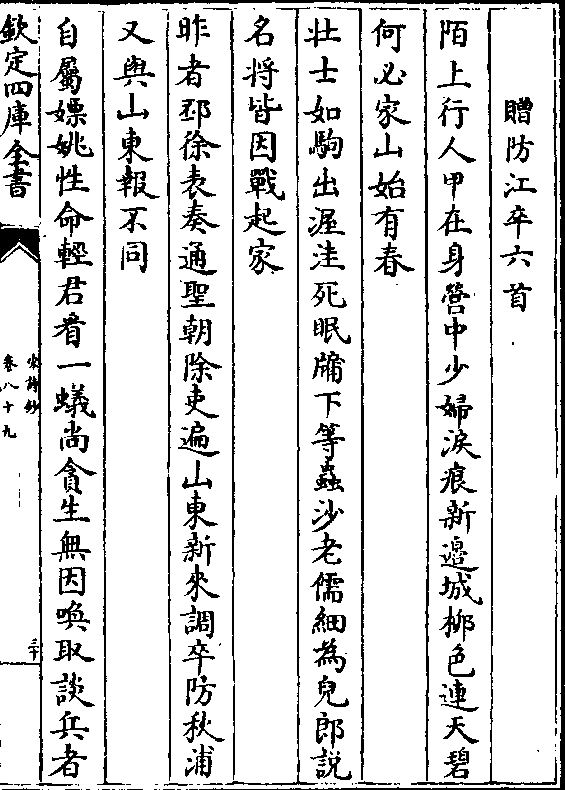 贈防江卒六首
陌上行人甲在身營中少婦淚痕新邉城栁色連天碧
何必家山始有春
壯士如駒出渥洼死眠牖下等蟲沙老儒細為兒郎說
名將皆因戰起家
昨者邳徐表奏通聖朝除吏遍山東新來調卒防秋浦
又與山東報不同
自屬嫖姚性命輕君看一蟻尚貪生無因喚取談兵者
欽定四庫全書
宋詩鈔
卷八十九
三十